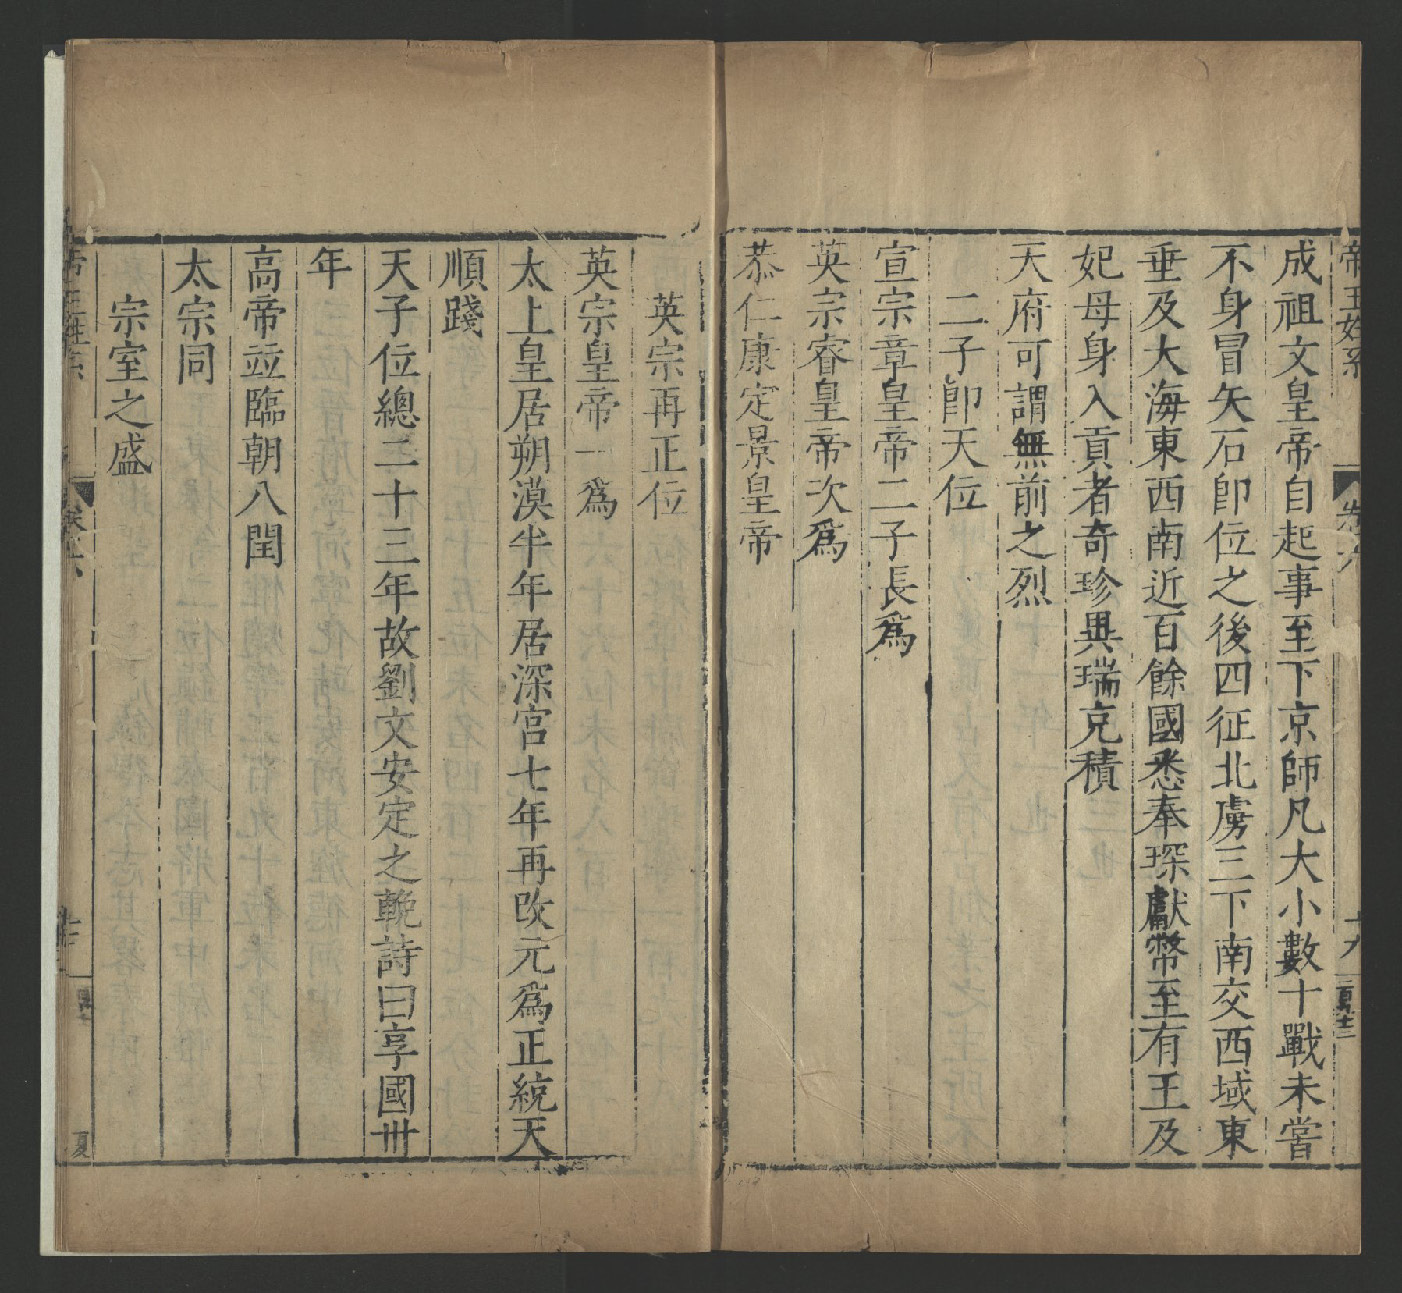 成祖文皇帝自起事至下京師凡大小數十戰未嘗
不身冒矢石卽位之後四征北虜三下南交西域東
垂及大海東西南近百餘國悉奉琛獻幣至有王及
妃母身入貢者奇珍異瑞充積
天府可謂無前之烈
二子卽天位
宣宗章皇帝二子長爲
英宗睿皇帝次爲
恭仁康定景皇帝
英宗再正位
英宗皇帝一爲
太上皇居朔漠半年居深宮七年再改元爲正統天
順踐
天子位總二十三年故劉文安定之輓詩曰享國卅
年
高帝竝臨朝八閏
太宗同
宗室之盛